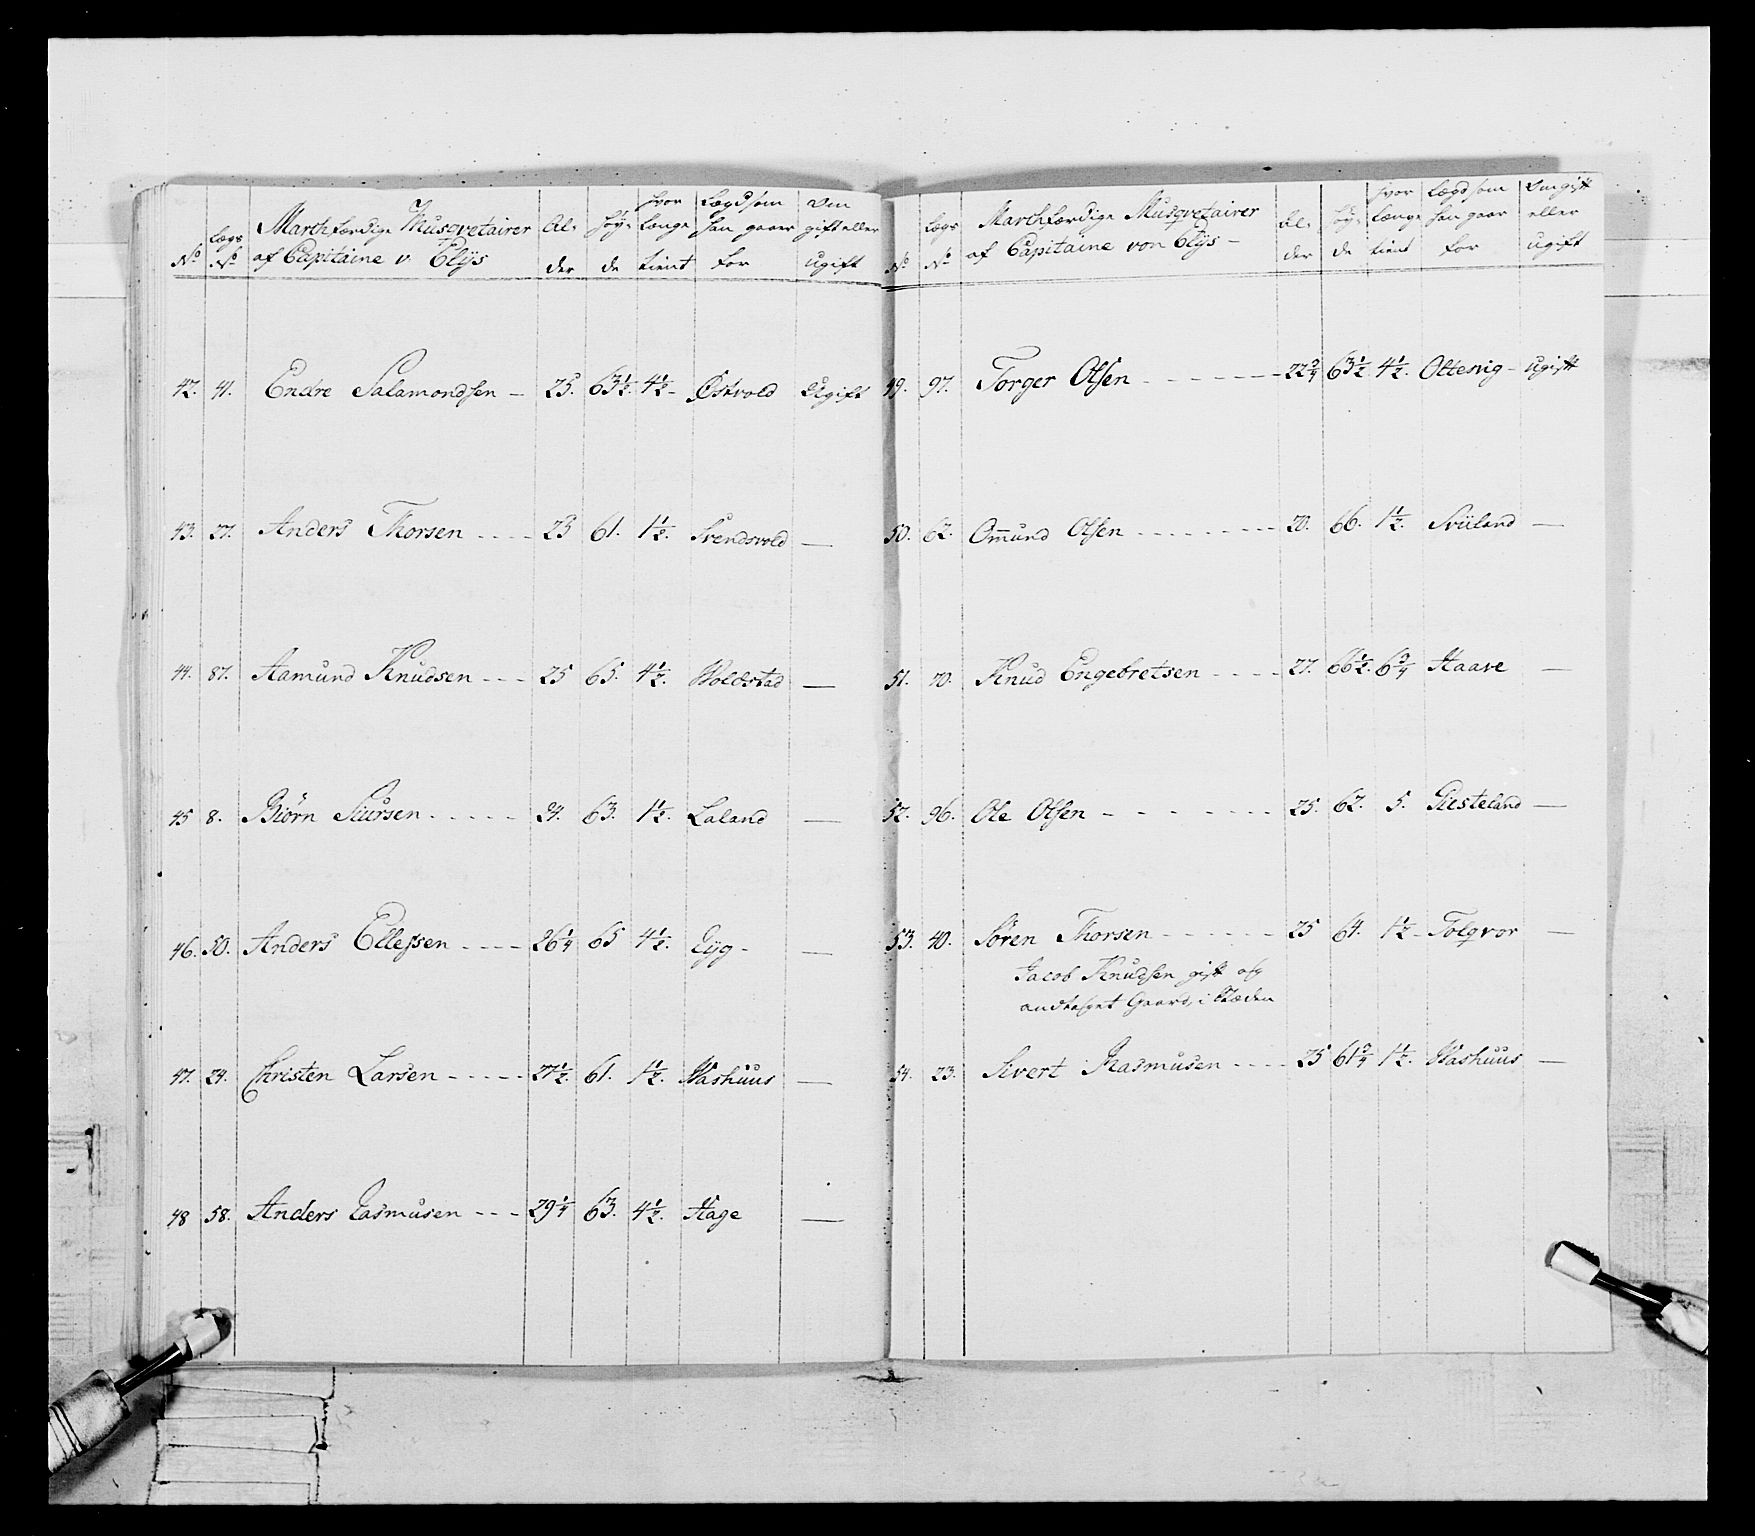 No Lægs No Marchfærdige Musqvetairer af Capitaine v. Clÿs Al- der Høy- de hvor længe tient Lægd som han gaaer for Om gift eller ugift
42. 41. Endre Salamondsen - 25. 63½. 4½ - Østvold Ugift
43. 27. Anders Thorsen .... 23 61. 1½. Svendsvold —
44. 87. Aamund Knudsen --- 25 65. 4½. Woldstad —
45 8. Biörn Siursen ..... 24. 63. 1½. Laland —
46. 50. Anders Ellefsen .... 26¼ 65 4½. Eÿg - —
47. 24. Christen Larsen ----- 27½. 61. 1½. Washuus —
48 58. Anders Rasmusen --- 29¼ 63. 4½. Hage —
No Lægs No Marchfærdige Musqvetairer af Capitaine von Clÿs - Al- der Høy- de hvor længe tient Lægd som han gaaer for Om gift eller ugift
49. 97. Torger Olsen ------- 22¾ 63½ 4½. Ottesvig - Ugift
50. 62. Omund Olsen ........ 20. 66. 1½. Sviland —
51. 70. Knud Engebretsen .... 27. 66½. 6¾ Haave —
52. 96. Ole Olsen - - - - - - - 25. 62. 5. Giesteland —
53. 40. Sören Thorsen ------- 25 64. 1½ - Tolqvor —
Jacob Knudsen gift og
Gaard, i Stæden
54. 23. Sivert Rasmusen .... 25 61¾ 1½. Washuus —